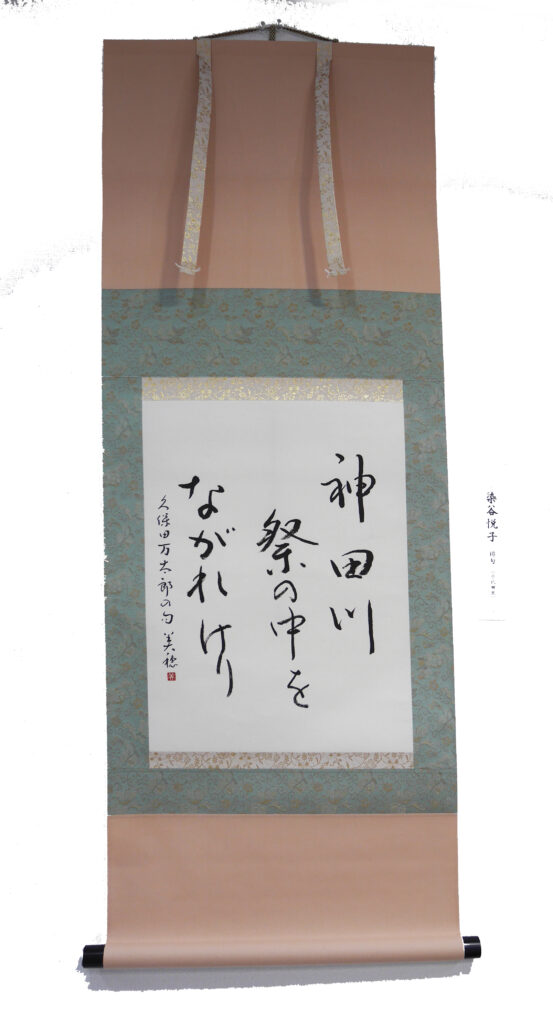 神田川
祭の中を
ながれけり
久保田万太郎の句 美穂
染谷悦子
俳句